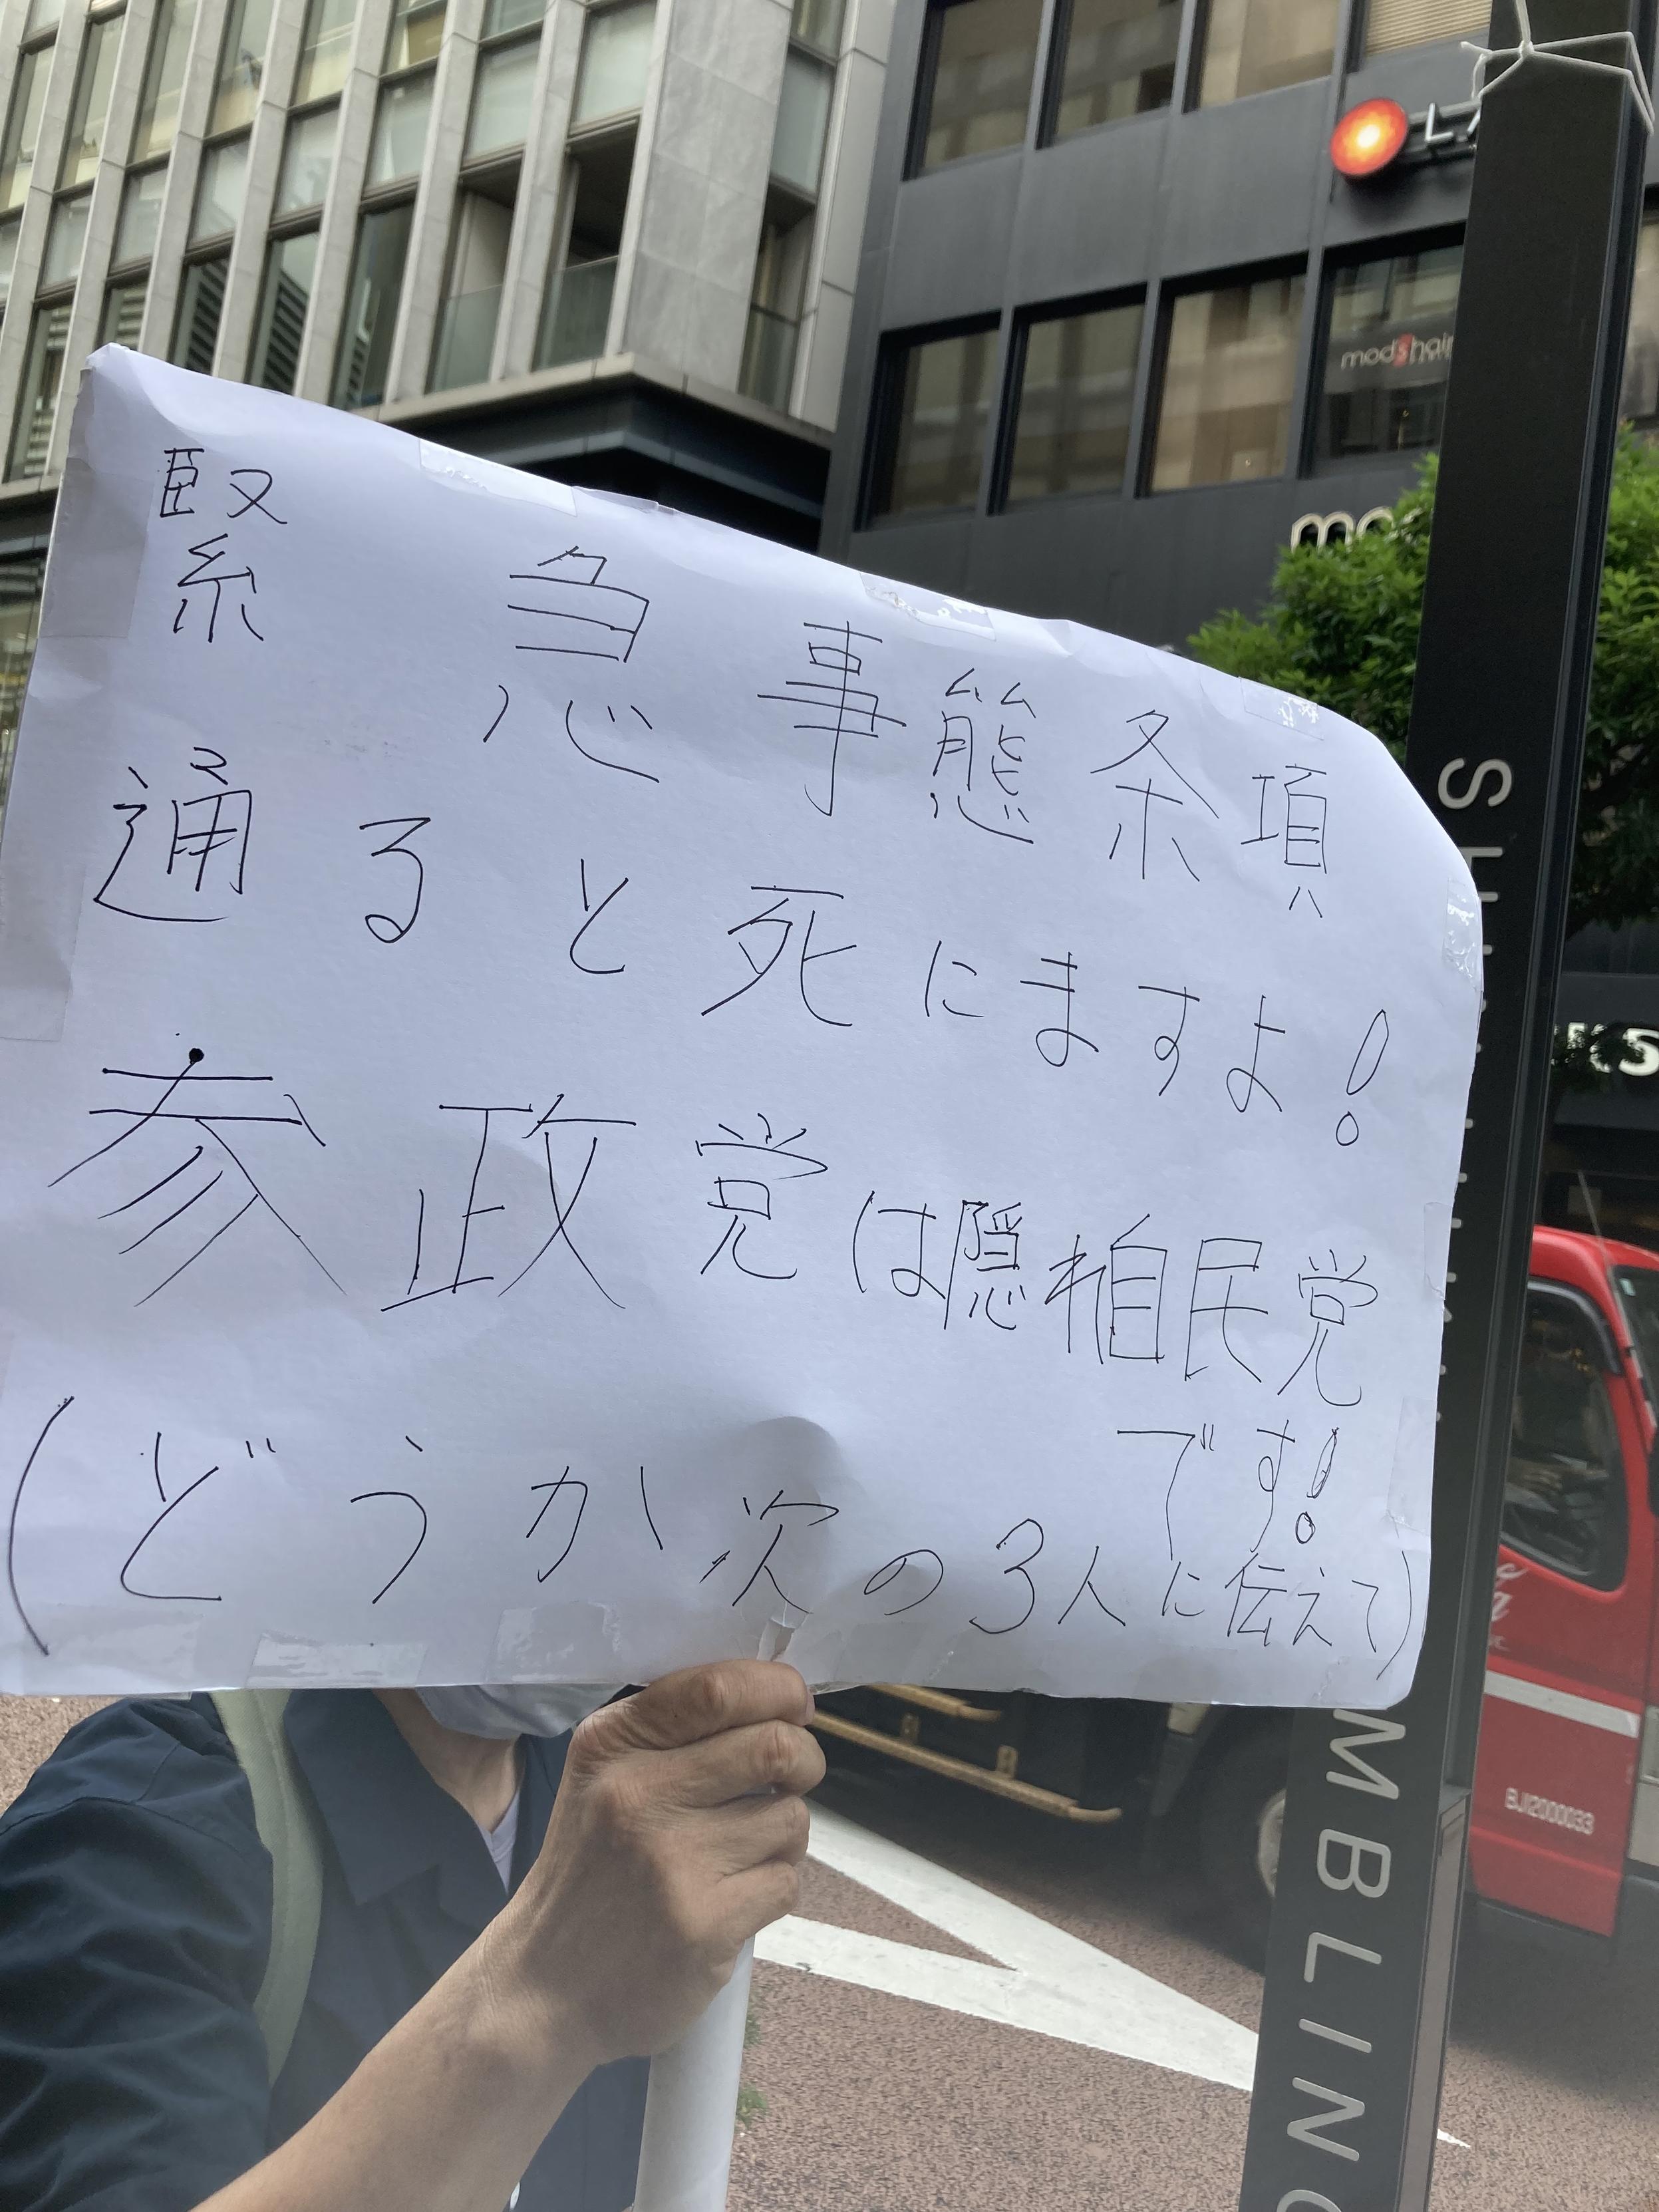 LA
mod's hair
mo
緊急事態条項
通ると死にますよ!
参政党は隠れ自民党
です!
(どうか次の3人に伝えて)
SH
MBLING
BJI2000033